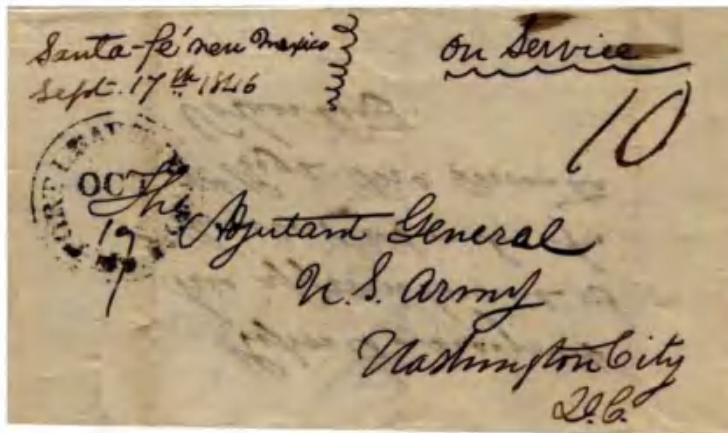 Santa-fé new Mexico
Sept. 17th 1846
on Service
10
OCT
19
The Adjutant General
U.S. Army
Washington City
D.C.